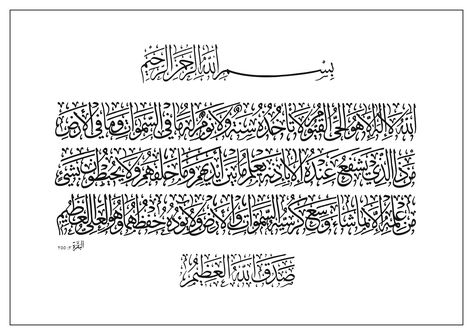 بِسْمِ اللَّهِ الرَّحْمَنِ الرَّحِيمِ
اللَّهُ لَا إِلَهَ إِلَّا هُوَ الْحَيُّ الْقَيُّومُ لَا تَأْخُذُهُ سِنَةٌ وَلَا نَوْمٌ لَهُ مَا فِي السَّمَوَاتِ وَمَا فِي الْأَرْضِ
مَنْ ذَا الَّذِي يَشْفَعُ عِنْدَهُ إِلَّا بِإِذْنِهِ يَعْلَمُ مَا بَيْنَ أَيْدِيهِمْ وَمَا خَلْفَهُمْ وَلَا يُحِيطُونَ بِشَيْءٍ
مِنْ عِلْمِهِ إِلَّا بِمَا شَاءَ وَسِعَ كُرْسِيُّهُ السَّمَوَاتِ وَالْأَرْضَ وَلَا يَئُودُهُ حِفْظُهُمَا وَهُوَ الْعَلِيُّ الْعَظِيمُ
البقرة ٢: ٢٥٥
صَدَقَ اللَّهُ الْعَظِيمُ